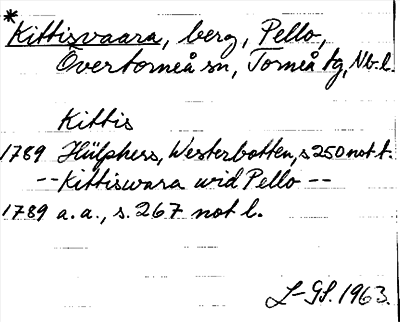 *
Kittisvaara, berg, Pello,
Övertorneå sn, Torneå tg, Nb. l.
Kittis
1789 Hülphers, Westerbotten, s 250 not t.
-- Kittiswara wid Pello --
1789 a. a., s. 267 not l.
L-GS. 1963.